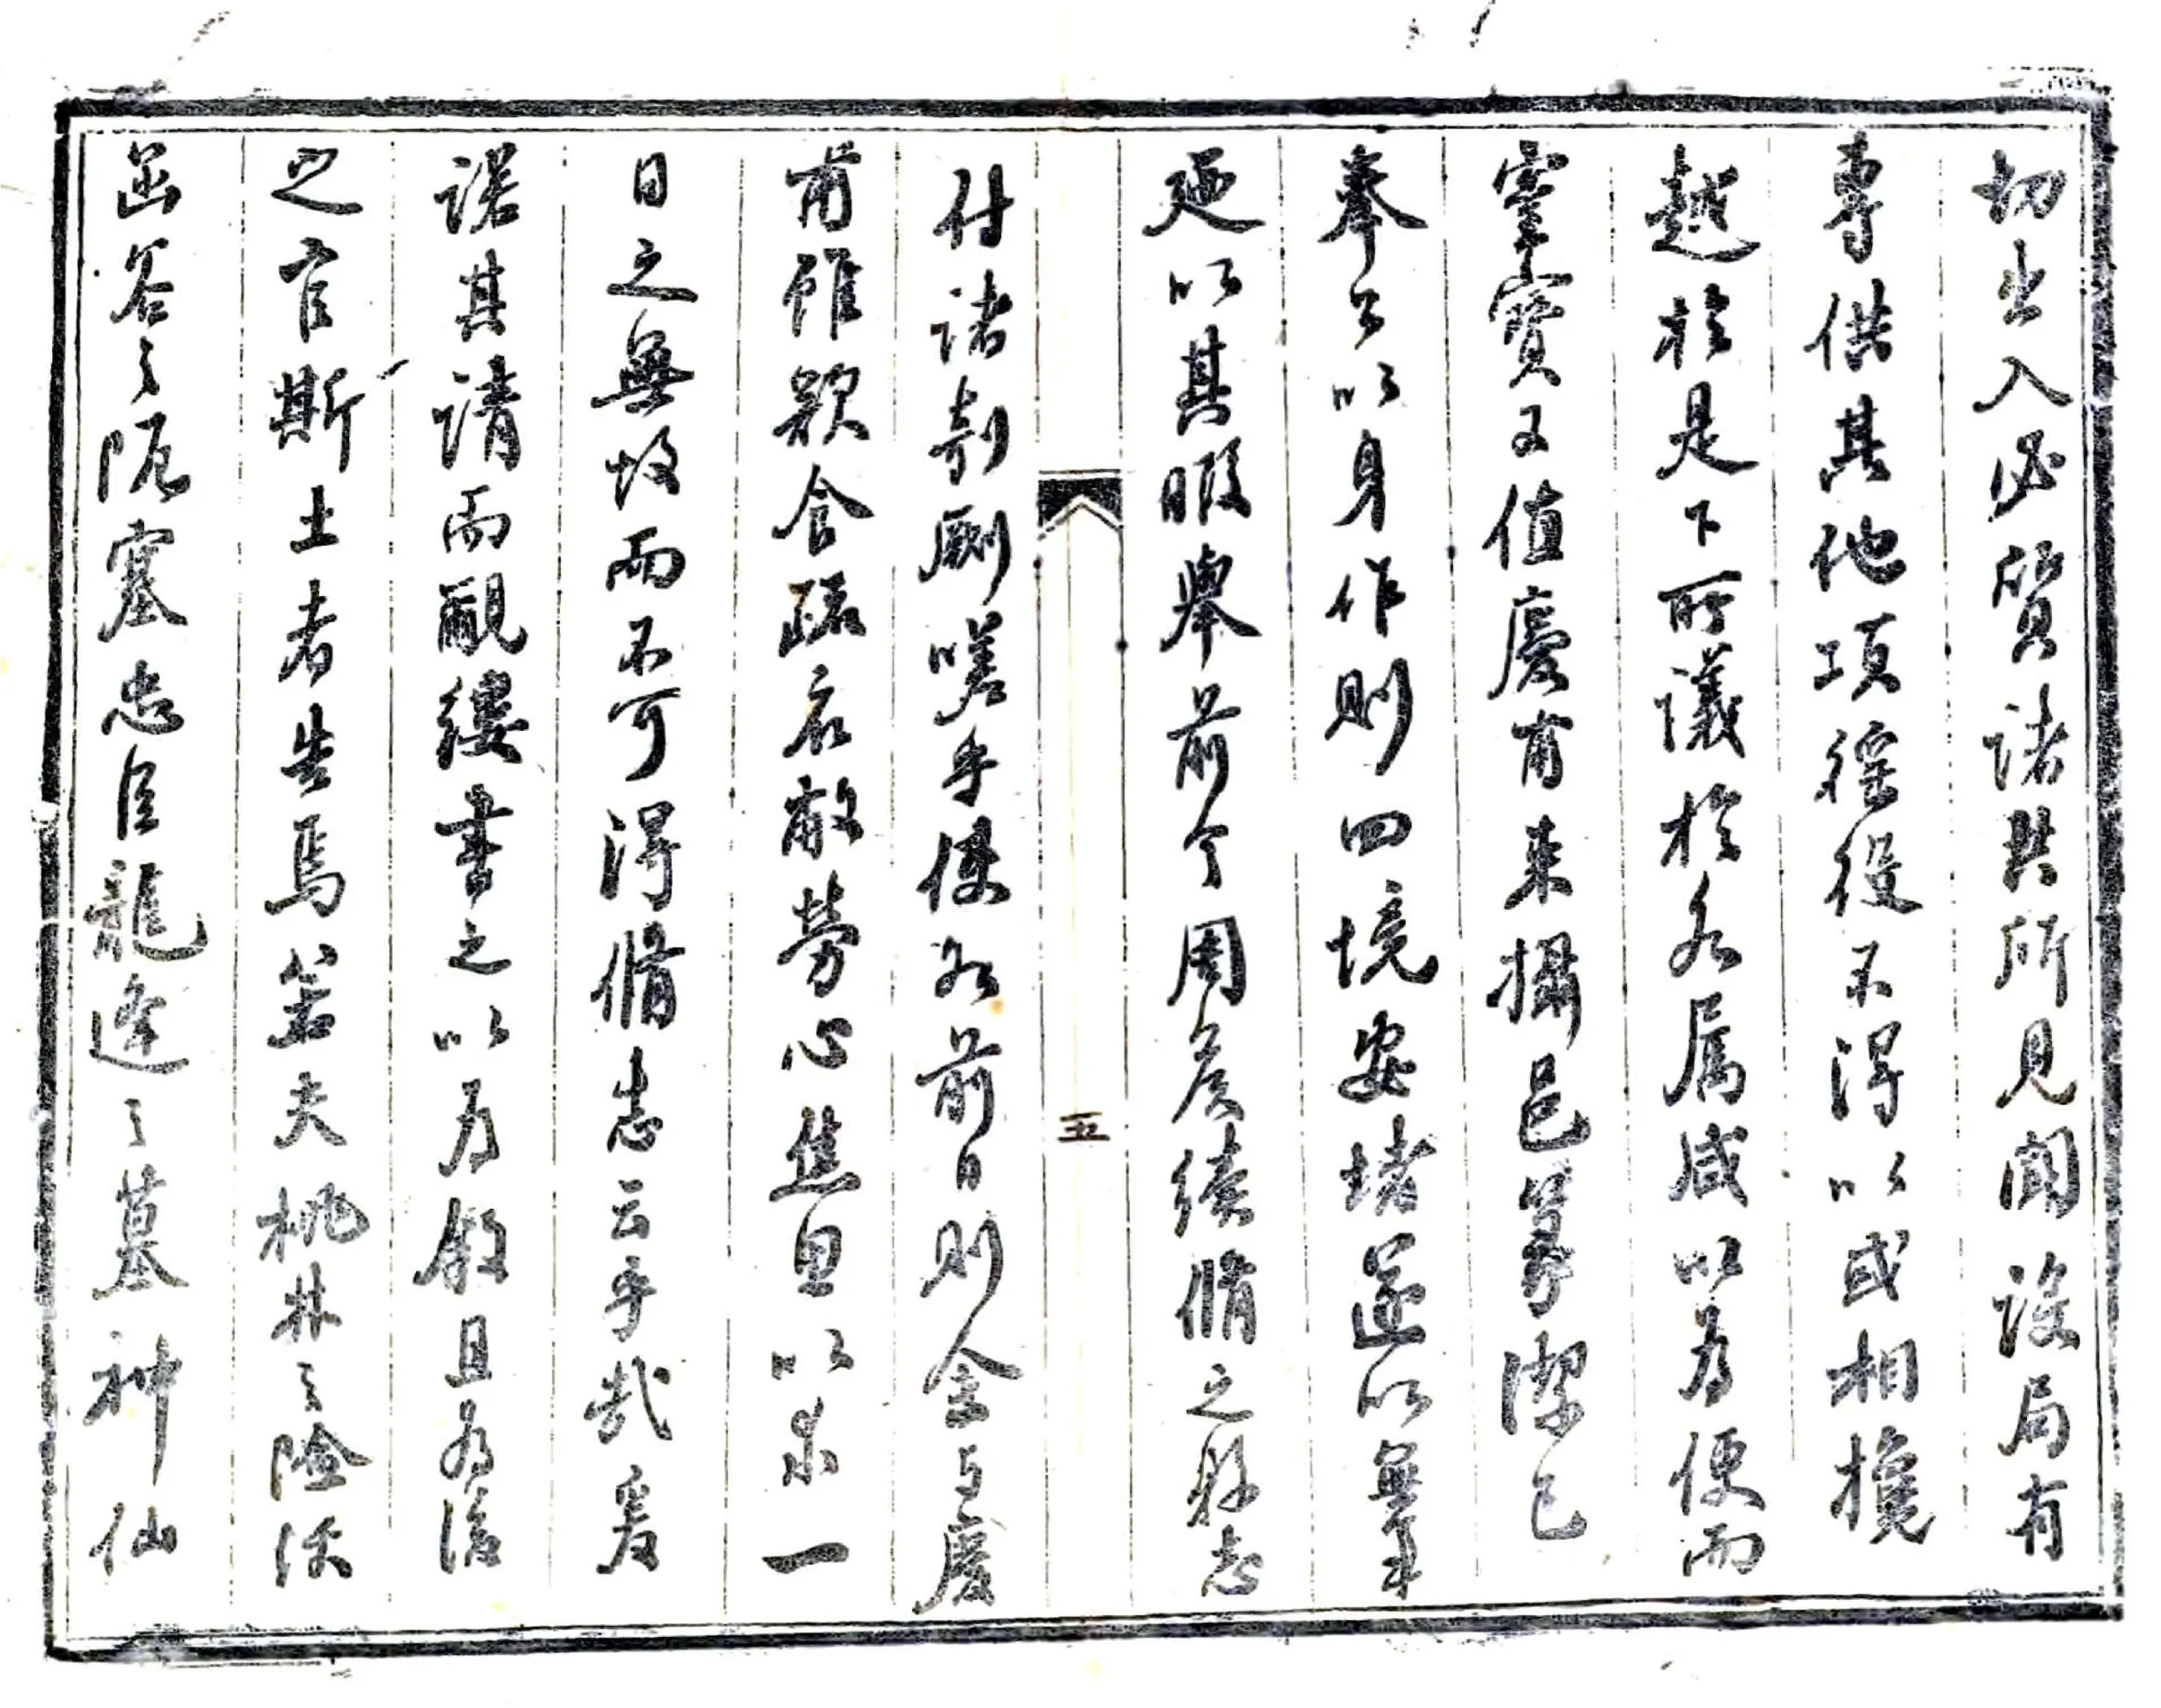 切出入必質諸共所見聞設局有
專供其他項徭役不得以或相攙
越於是下所議於各属咸以為便而
靈寶又值慶甫來攝邑篆潔已
奉公以身作則四境安堵遂以無事
廼以其暇舉前令周彥續脩之縣志
付諸剞劂嗟乎使如前日則余与慶
甫雖欲食疏衣敝勞心焦思以求一
日之無故而不可得脩志云乎哉爰
諾其請而覼縷書之以為敘且為後
之官斯土者告焉若夫桃林之險沃
函谷之阨塞忠臣龍逢之墓神仙
五